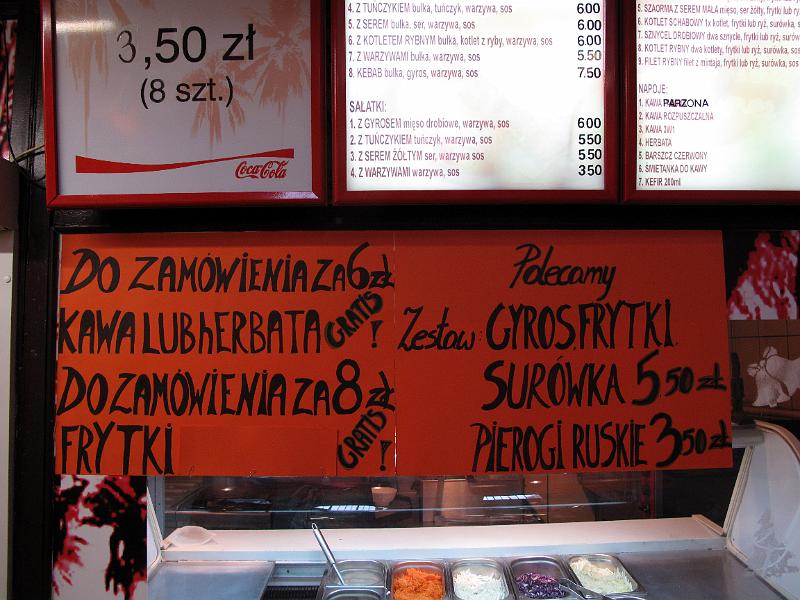 3,50 zł
(8 szt.)
Coca-Cola
4. Z TUŃCZYKIEM bułka, tuńczyk, warzywa, sos 6.00
5. Z SEREM bułka, ser, warzywa, sos 6.00
6. Z KOTLETEM RYBNYM bułka, kotlet z ryby, warzywa, sos 6.00
7. Z WARZYWAMI bułka, warzywa, sos 5.50
8. KEBAB bułka, gyros, warzywa, sos 7.50
SAŁATKI:
1. Z GYROSEM mięso drobiowe, warzywa, sos 600
2. Z TUŃCZYKIEM tuńczyk, warzywa, sos 550
3. Z SEREM ŻÓŁTYM ser, warzywa sos 5.50
4. Z WARZYWAMI warzywa, sos 350
5. SZAORMA Z SEREM MAŁA mięso, ser żółty, frytki lub
6. KOTLET SCHABOWY 1x kotlet, frytki lub ryż, surówka
7. SZNYCEL DROBIOWY dwa sznycle, frytki lub ryż,
8. KOTLET RYBNY dwa kotlety, frytki lub ryż, surówka, sos
9. FILET RYBNY filet z mintaja, frytki lub ryż, surówka, sos
NAPOJE:
1. KAWA PARZONA
2. KAWA ROZPUSZCZALNA
3. KAWA 3W1
4. HERBATA
5. BARSZCZ CZERWONY
6. ŚMIETANKA DO KAWY
7. KEFIR 200ml
DO ZAMÓWIENIA ZA 6 zł
KAWA LUB hERBATA GRATIS !
DO ZAMÓWIENIA ZA 8 zł
FRYTKI GRATIS !
Polecamy
Zestaw: GYROS, FRYTKI,
SURÓWKA 5.50 zł
PIEROGI RUSKIE 350 zł